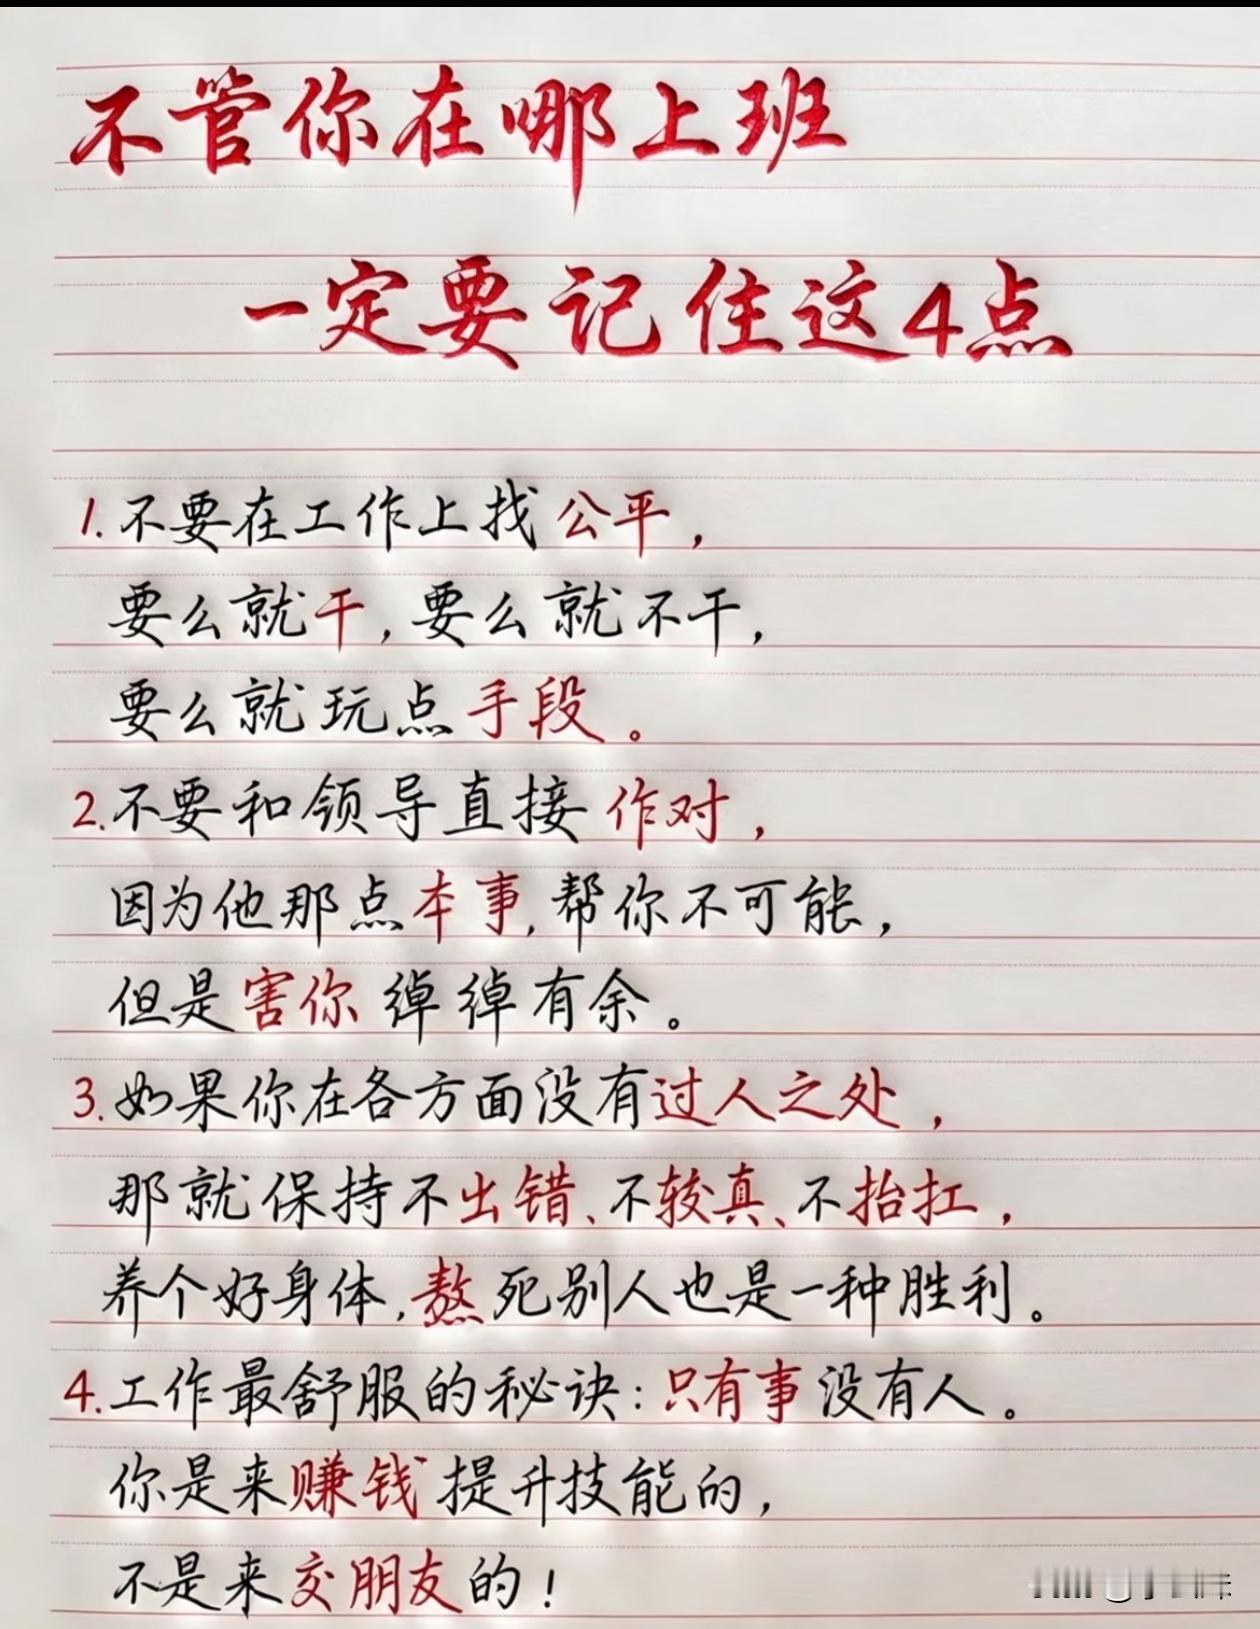 不管你在哪上班
一定要记住这4点
1.不要在工作上找公平，
要么就干，要么就不干，
要么就玩点手段。
2.不要和领导直接作对，
因为他那点本事，帮你不可能，
但是害你绰绰有余。
3.如果你在各方面没有过人之处，
那就保持不出错、不较真、不抬扛，
养个好身体，熬死别人也是一种胜利。
4.工作最舒服的秘诀：只有事没有人。
你是来赚钱提升技能的，
不是来交朋友的！